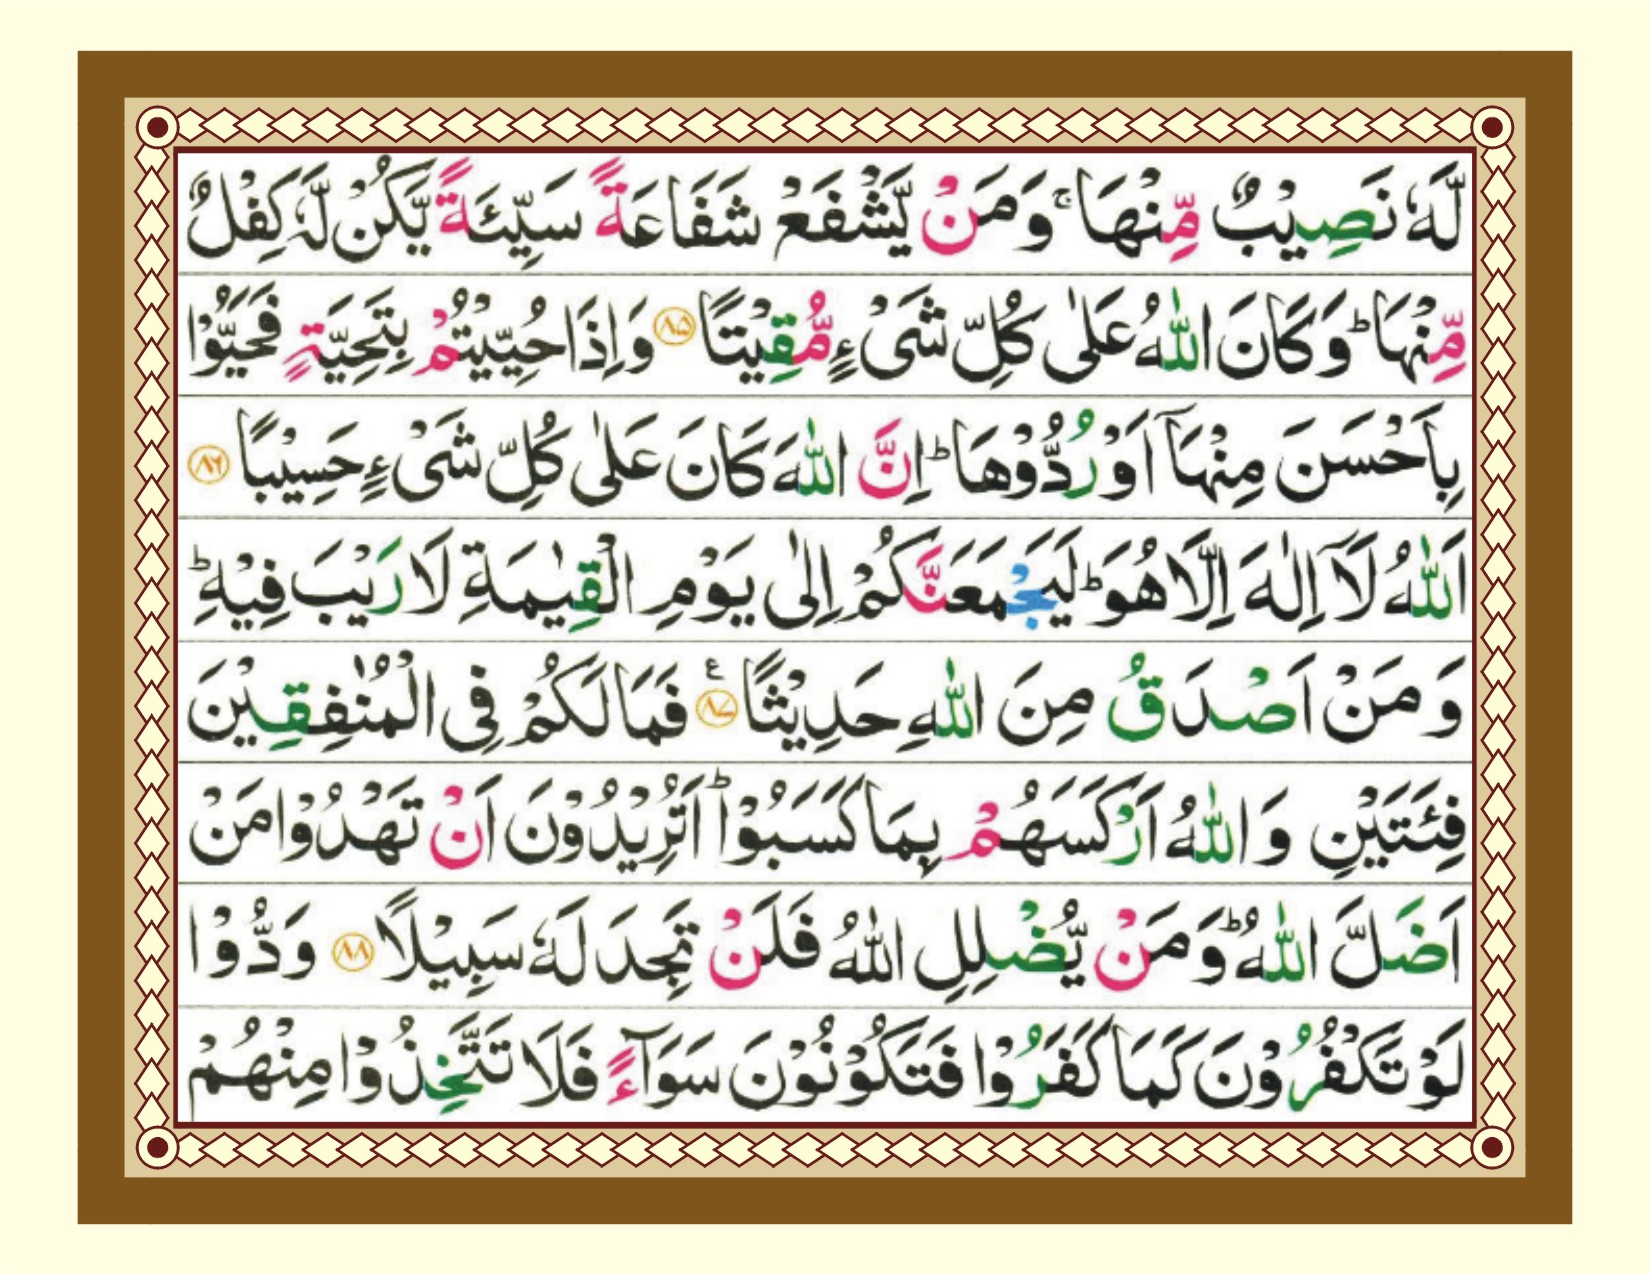 لَّهٗ نَصِيْبٌ مِّنْهَا ۚ وَمَنْ يَّشْفَعْ شَفَاعَةً سَيِّئَةً يَّكُنْ لَّهٗ كِفْلٌ
مِّنْهَا ؕ وَكَانَ اللّٰهُ عَلٰى كُلِّ شَىْءٍ مُّقِيْتًا ۝٨٥ وَاِذَا حُيِّيْتُمْ بِتَحِيَّةٍ فَحَيُّوْا
بِاَحْسَنَ مِنْهَاۤ اَوْ رُدُّوْهَا ؕ اِنَّ اللّٰهَ كَانَ عَلٰى كُلِّ شَىْءٍ حَسِيْبًا ۝٨٦
اَللّٰهُ لَاۤ اِلٰهَ اِلَّا هُوَ ؕ لَيَجْمَعَنَّكُمْ اِلٰى يَوْمِ الْقِيٰمَةِ لَا رَيْبَ فِيْهِ ؕ
وَمَنْ اَصْدَقُ مِنَ اللّٰهِ حَدِيْثًا ۝٨٧ ع فَمَا لَكُمْ فِى الْمُنٰفِقِيْنَ
فِئَتَيْنِ وَاللّٰهُ اَرْكَسَهُمْ بِمَا كَسَبُوْا ؕ اَتُرِيْدُوْنَ اَنْ تَهْدُوْا مَنْ
اَضَلَّ اللّٰهُ ؕ وَمَنْ يُّضْلِلِ اللّٰهُ فَلَنْ تَجِدَ لَهٗ سَبِيْلًا ۝٨٨ وَدُّوْا
لَوْ تَكْفُرُوْنَ كَمَا كَفَرُوْا فَتَكُوْنُوْنَ سَوَآءً فَلَا تَتَّخِذُوْا مِنْهُمْ